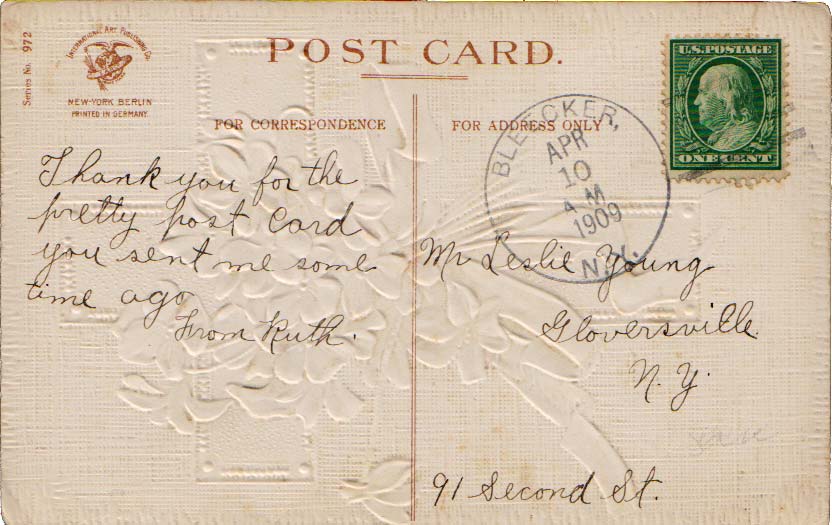 Series No. 972
INTERNATIONAL ART PUBLISHING CO.
NEW-YORK BERLIN
PRINTED IN GERMANY
POST CARD.
U.S. POSTAGE
ONE CENT
FOR CORRESPONDENCE
FOR ADDRESS ONLY
BLEECKER,
APR
10
A.M
1909
N.Y.
Thank you for the
pretty post Card
you sent me some
time ago
From Ruth.
Mr Leslie Young
Gloversville
N.Y.
91 Second St.